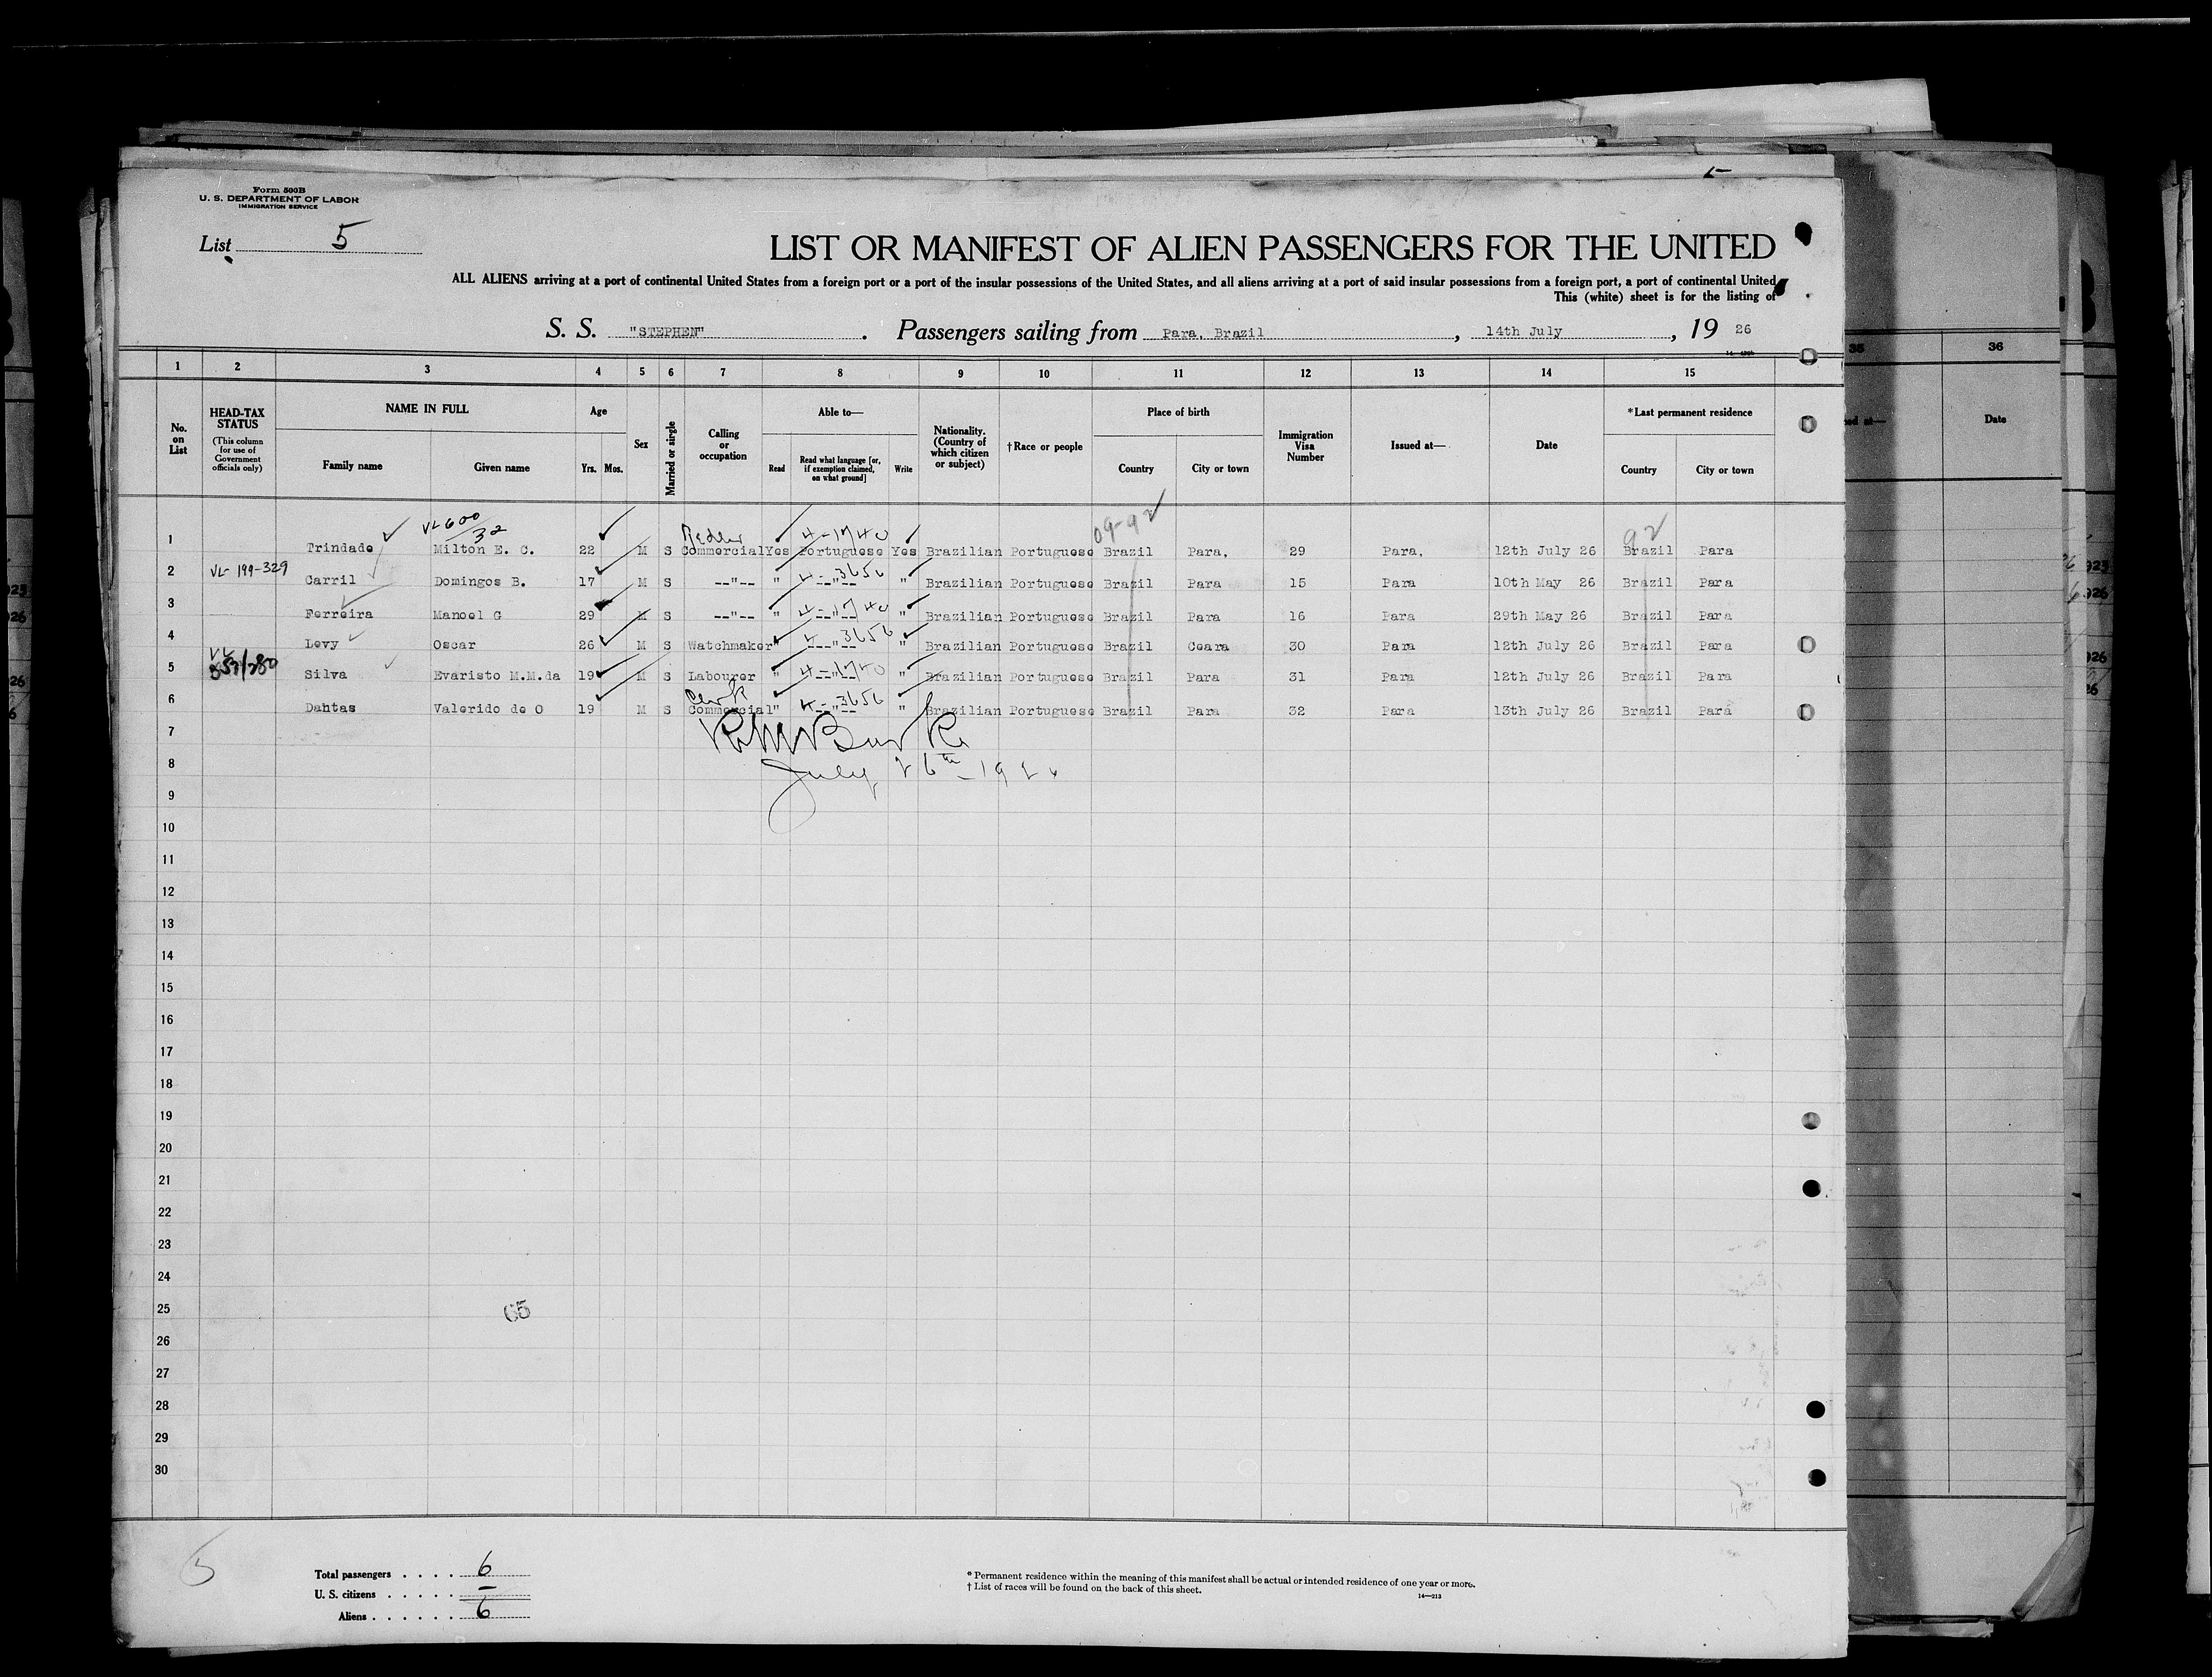 Form 500B
U. S. DEPARTMENT OF LABOR
IMMIGRATION SERVICE
List 5
LIST OR MANIFEST OF ALIEN PASSENGERS FOR THE UNITED
ALL ALIENS arriving at a port of continental United States from a foreign port or a port of the insular possessions of the United States, and all aliens arriving at a port of said insular possessions from a foreign port, a port of continental United
This (white) sheet is for the listing of
S. S. "STEPHEN" . Passengers sailing from Para, Brazil , 14th July , 19 26
1 2 3 4 5 6 7 8 9 10 11 12 13 14 15
35 36
No. on List
HEAD-TAX STATUS
(This column for use of Government officials only)
NAME IN FULL
Family name Given name
Age
Yrs. Mos.
Sex
Married or single
Calling or occupation
Able to—
Read
Read what language [or, if exemption claimed, on what ground]
Write
Nationality. (Country of which citizen or subject)
†Race or people
Place of birth
Country City or town
Immigration Visa Number
Issued at—
Date
*Last permanent residence
Country City or town
Date
VL 600/32 4-1740 09-92 92
1 Trindade Milton E. C. 22 M S Commercial Yes Portuguese Yes Brazilian Portuguese Brazil Para, 29 Para, 12th July 26 Brazil Para
VL 199-329 4-3656
2 Carril Domingos B. 17 M S --"-- " --"-- " Brazilian Portuguese Brazil Para 15 Para 10th May 26 Brazil Para
4-1740
3 Ferreira Manoel G 29 M S --"-- " --"-- " Brazilian Portuguese Brazil Para 16 Para 29th May 26 Brazil Para
4-3656
4 Levy Oscar 26 M S Watchmaker " ---"-- " Brazilian Portuguese Brazil Ceara 30 Para 12th July 26 Brazil Para
4-1740
5 Silva Evaristo M.M.da 19 M S Labourer " --"-- " Brazilian Portuguese Brazil Para 31 Para 12th July 26 Brazil Para
Clerk 4-3656
6 Dahtas Valerido de O 19 M S Commercial " --"-- " Brazilian Portuguese Brazil Para 32 Para 13th July 26 Brazil Para
7
July 26th - 1926
8
9
10
11
12
13
14
15
16
17
18
19
20
21
22
23
24
25 65
26
27
28
29
30
5
Total passengers . . . . 6
U. S. citizens . . . . . —
Aliens . . . . . . 6
* Permanent residence within the meaning of this manifest shall be actual or intended residence of one year or more.
† List of races will be found on the back of this sheet.
14—213